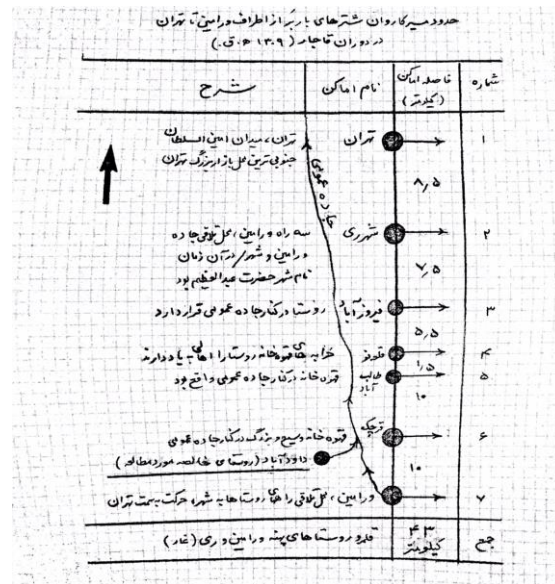 حدود مسیر کاروان شترهای باربَر از اطراف ورامین تا تهران
در دوران قاجار (۱۳۰۹ ه.ق.)
شماره فاصله اماکن (کیلومتر) نام اماکن شرح
جاده عمومی
۱ تهران تهران، میدان امین السلطان
جنوبی ترین محل بازار بزرگ تهران
۸٫۵
۲ شهرری سه راه ورامین، محل تلاقی جاده
ورامین و شهر/ در آن زمان
نام شهر حضرت عبدالعظیم بود
۷٫۵
۳ فیروزآباد روستا در کنار جاده عمومی قرار دارد
۵٫۵
۴ قلعه نو خرابه های قهوه خانه روستا را اهالی به یاد دارند
۱٫۵
۵ طالب آباد قهوه خانه در کنار جاده عمومی واقع بود
۱۰
۶ قرچک قهوه خانه وسیع و بزرگ در کنار جاده عمومی
داودآباد (روستای خالصه مورد مطالعه)
۱۰
۷ ورامین، محل تلاقی راههای روستاها به شهر، حرکت به سمت تهران
جمع ۴۳ کیلومتر قلمرو روستاهای پهنه ورامین و ری (غار)